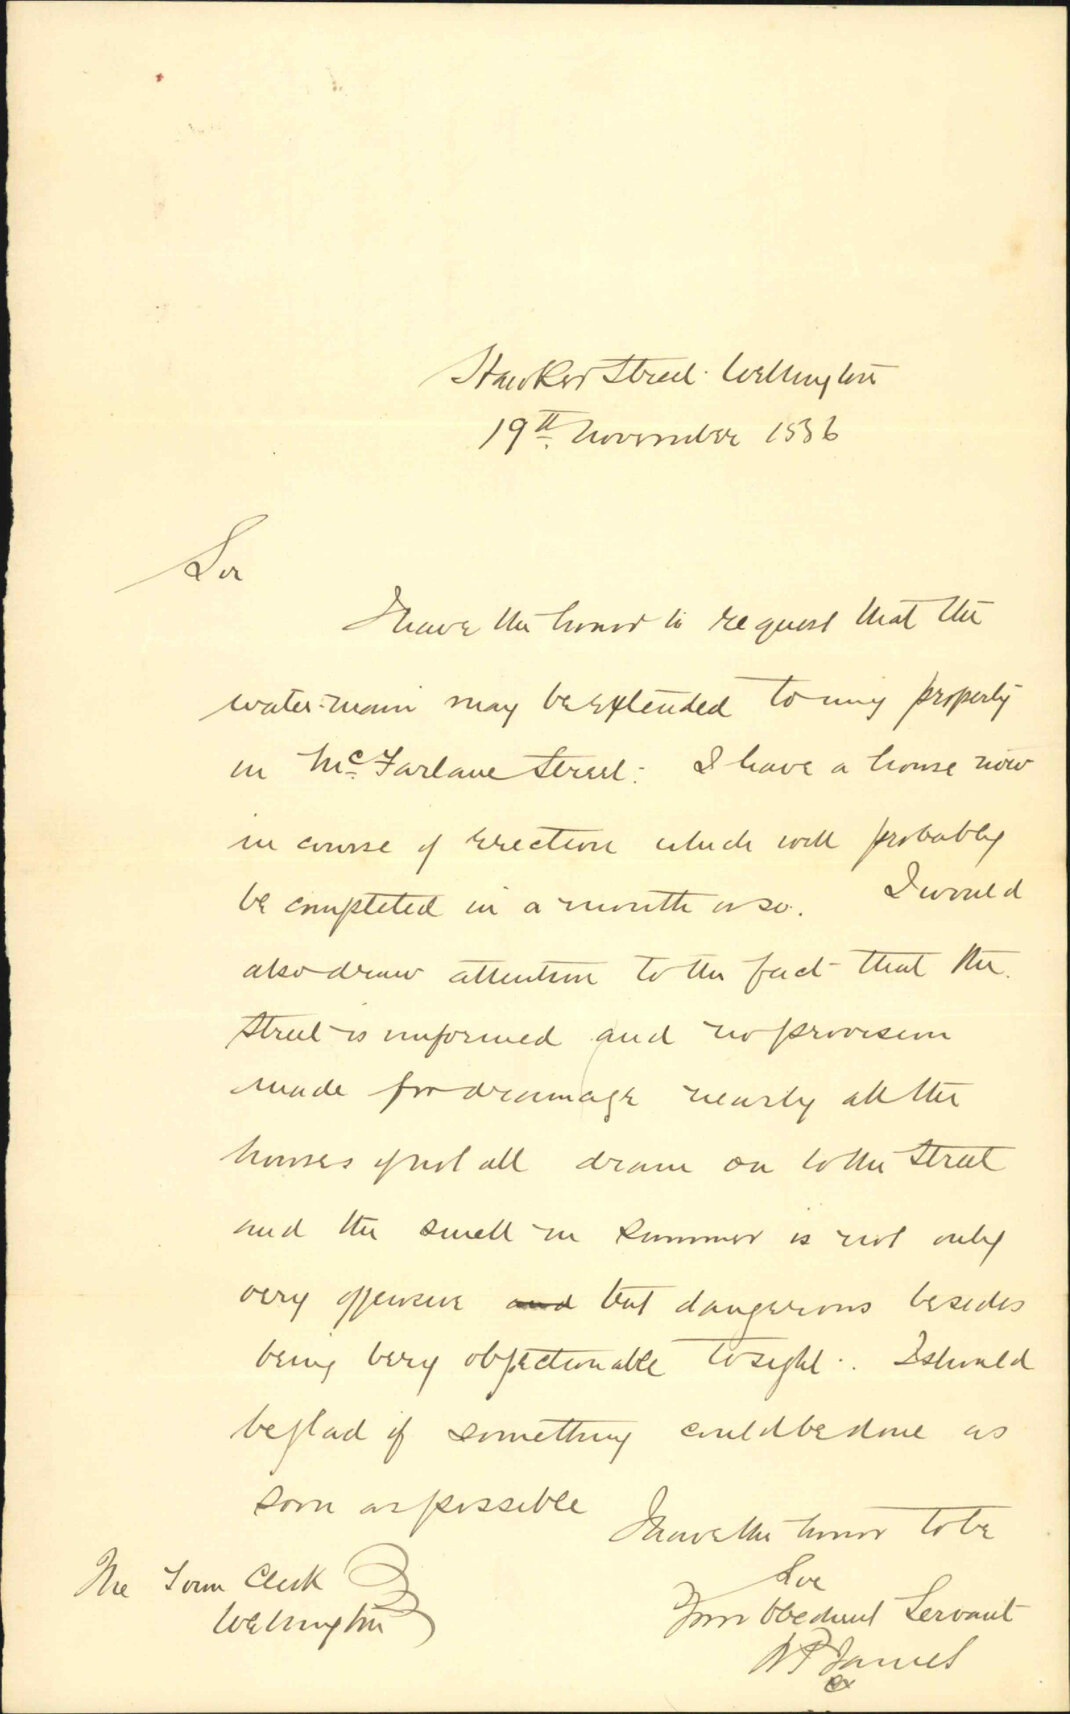 Hawker Street. Wellington
19th November 1886
Sir
I have the honor to request that the
water-main may be extended to my property
in McFarlane Street. I have a house now
in course of erection which will probably
be completed in a month or so. I would
also draw attention to the fact that the
Street is unformed and no provision
made for drainage nearly all the
houses if not all drain on to the Street
and the smell in summer is not only
very offensive and but dangerous besides
being very objectionable to sight. I should
be glad if something could be done as
soon as possible
I have the honor to be
Sir
Your Obedient Servant
James
The Town Clerk
Wellington